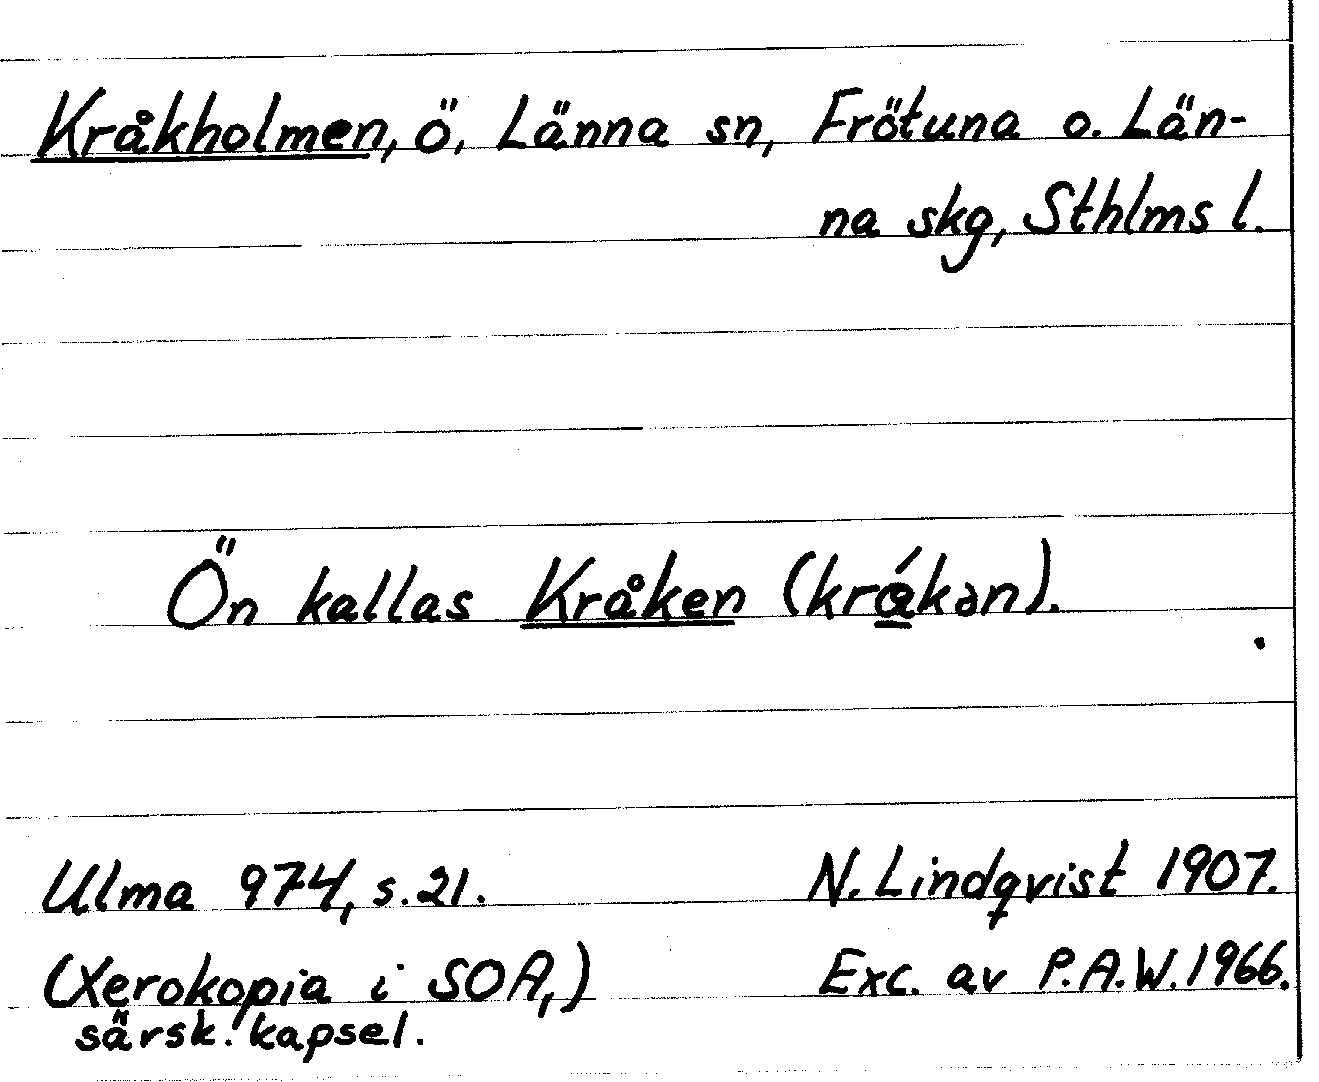 Kråkholmen, ö, Länna sn, Frötuna o. Län-
na skg, Sthlms l.
Ön kallas Kråken (krá̱kən).
Ulma 974, s. 21.
N. Lindqvist 1907.
(Xerokopia i SOA,)
Exc. av P.A.W. 1966.
särsk. kapsel.